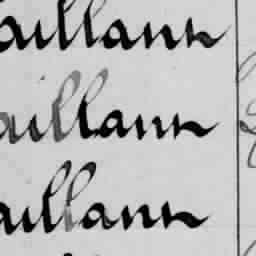 aillann
aillann
aillann